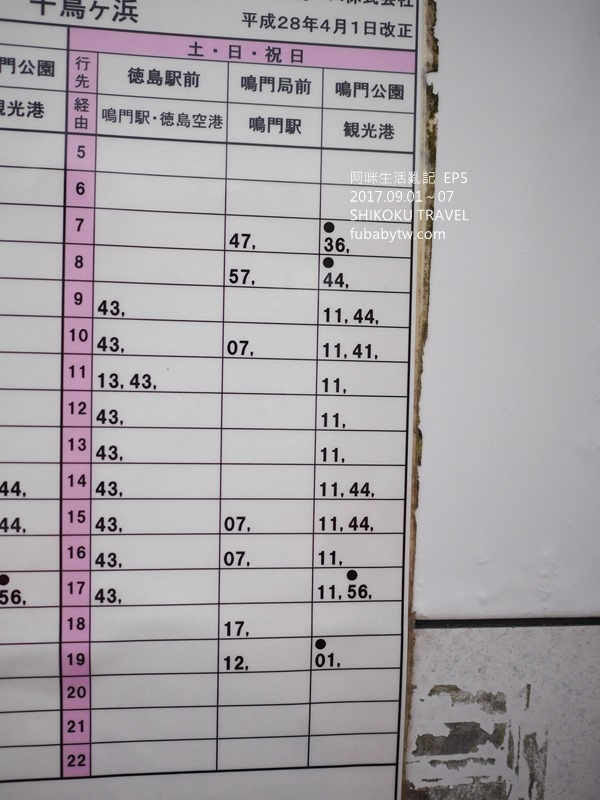 千鳥ヶ浜
株式会社
平成28年4月1日改正
土・日・祝日
門公園 行先 徳島駅前 鳴門局前 鳴門公園
観光港 経由 鳴門駅・徳島空港 鳴門駅 観光港
5
6
7 47, ●36,
8 57, ●44,
9 43, 11, 44,
10 43, 07, 11, 41,
11 13, 43, 11,
12 43, 11,
13 43, 11,
44, 14 43, 11, 44,
44, 15 43, 07, 11, 44,
16 43, 07, 11,
●56, 17 43, 11, ●56,
18 17,
19 12, ●01,
20
21
22
阿咪生活亂記 EP5
2017.09.01~07
SHIKOKU TRAVEL
fubabytw.com